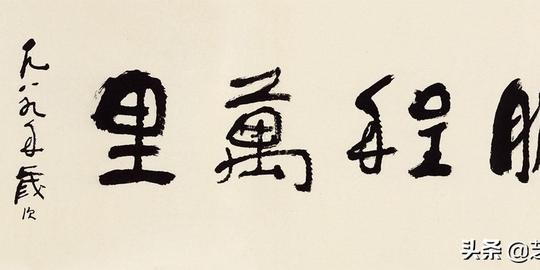 程萬里
一九八九年歲次
头条 @